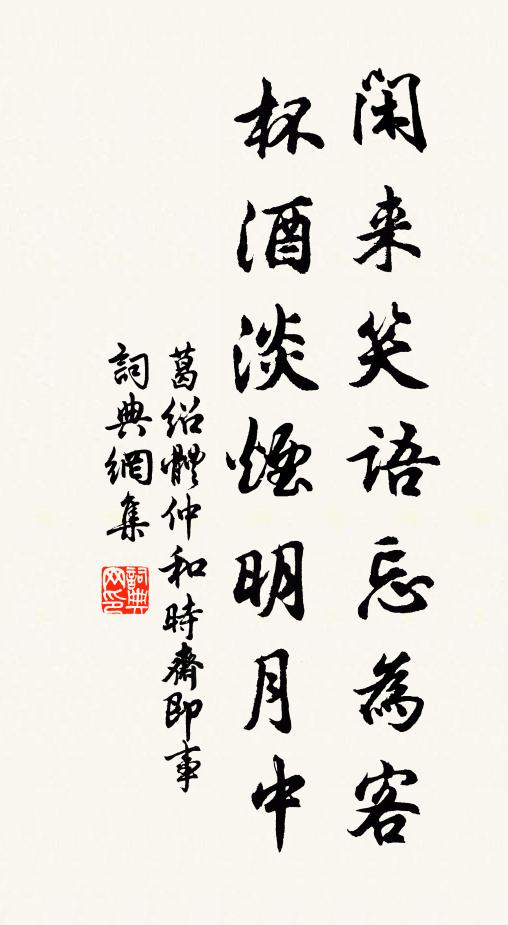 閑来笑語忘為客
杯酒淡煙明月中
葛紹體仲和時齋即事
詞典網集
詞典网印